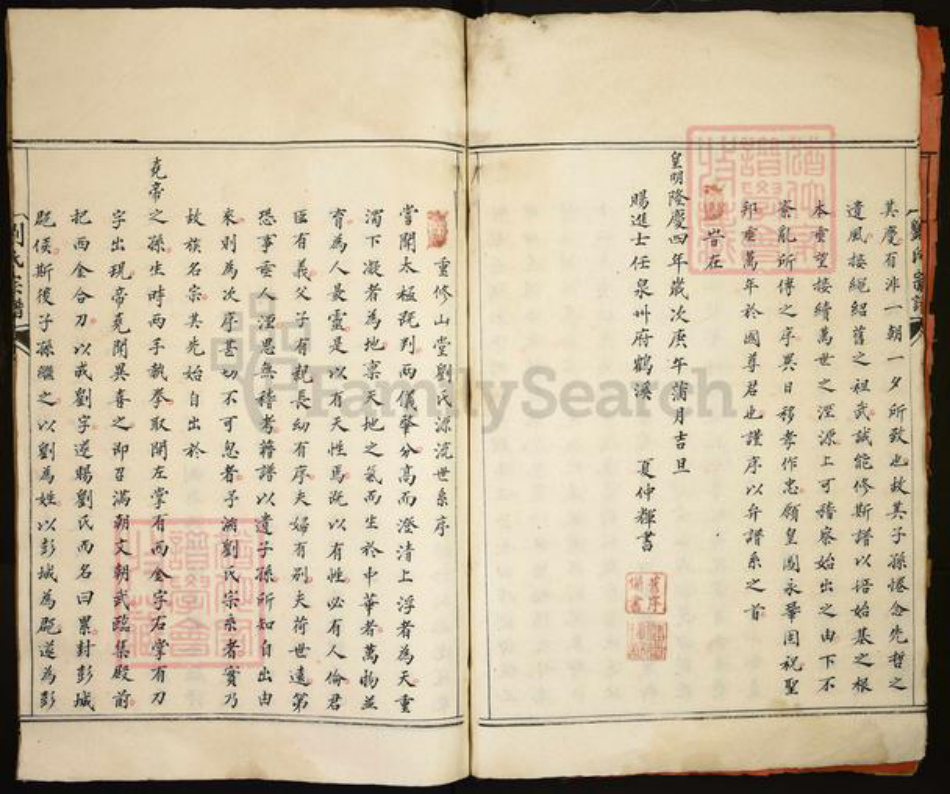 其慶有非一朝一夕所致也故其子孫惓念先哲之
遺風接繩紹舊之祖武誠能修斯譜以培始基之根
本重望接續萬世之涇源上可稽察始出之由下不
紊亂所傳之序異日移孝作忠願皇圖永鞏固祝聖
邦重萬年於國尊君也謹序以弁譜系之首
旹在
皇明隆慶四年歲次庚午蒲月吉旦
賜進士任泉州府鶴溪 夏仲輝書
重修山堂劉氏源流世系序
嘗聞太極既判兩儀肇分高而澄清上浮者為天重
濁下凝者為地稟天地之氣而生於中華者萬物並
育為人最靈是以有天性焉既以有性必有人倫君
臣有義父子有親長幼有序夫婦有別夫荷世遠第
恐事湮人湮思無稽考籍譜以遺子孫所知自出由
來則為次序甚切不可忽者予溯劉氏宗系者實乃
故族名宗其先始自出於
堯帝之孫生時兩手執拳取開左掌有兩金字右掌有刀
字出現帝堯聞異喜之即召滿朝文朝武臨集殿前
把兩金合刀以成劉字遂賜劉氏而名曰累封彭城
郡侯斯後子孫繼之以劉為姓以彭城為郡遂為彭
劉氏宗譜
劉氏宗譜
FamilySearch